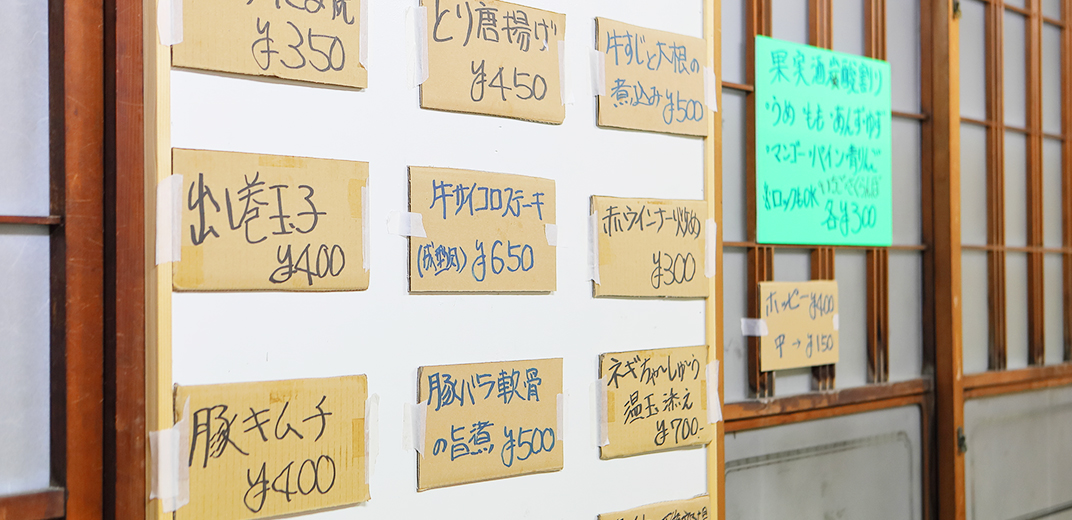 ¥350
とり唐揚げ
¥450
牛すじと大根の
煮込み¥500
出し巻玉子
¥400
牛サイコロステーキ
(成型肉) ¥650
赤ウインナー炒め
¥300
豚キムチ
¥400
豚バラ軟骨
の旨煮 ¥500
ネギちゃーしゅう
温玉添え
¥700-
果実酒炭酸割り
・うめ・もも・あんず・ゆず
・マンゴー・パイン・青りんご
いちご・さくらんぼ
ロックもOK
各¥300
ホッピー¥400
中→¥150